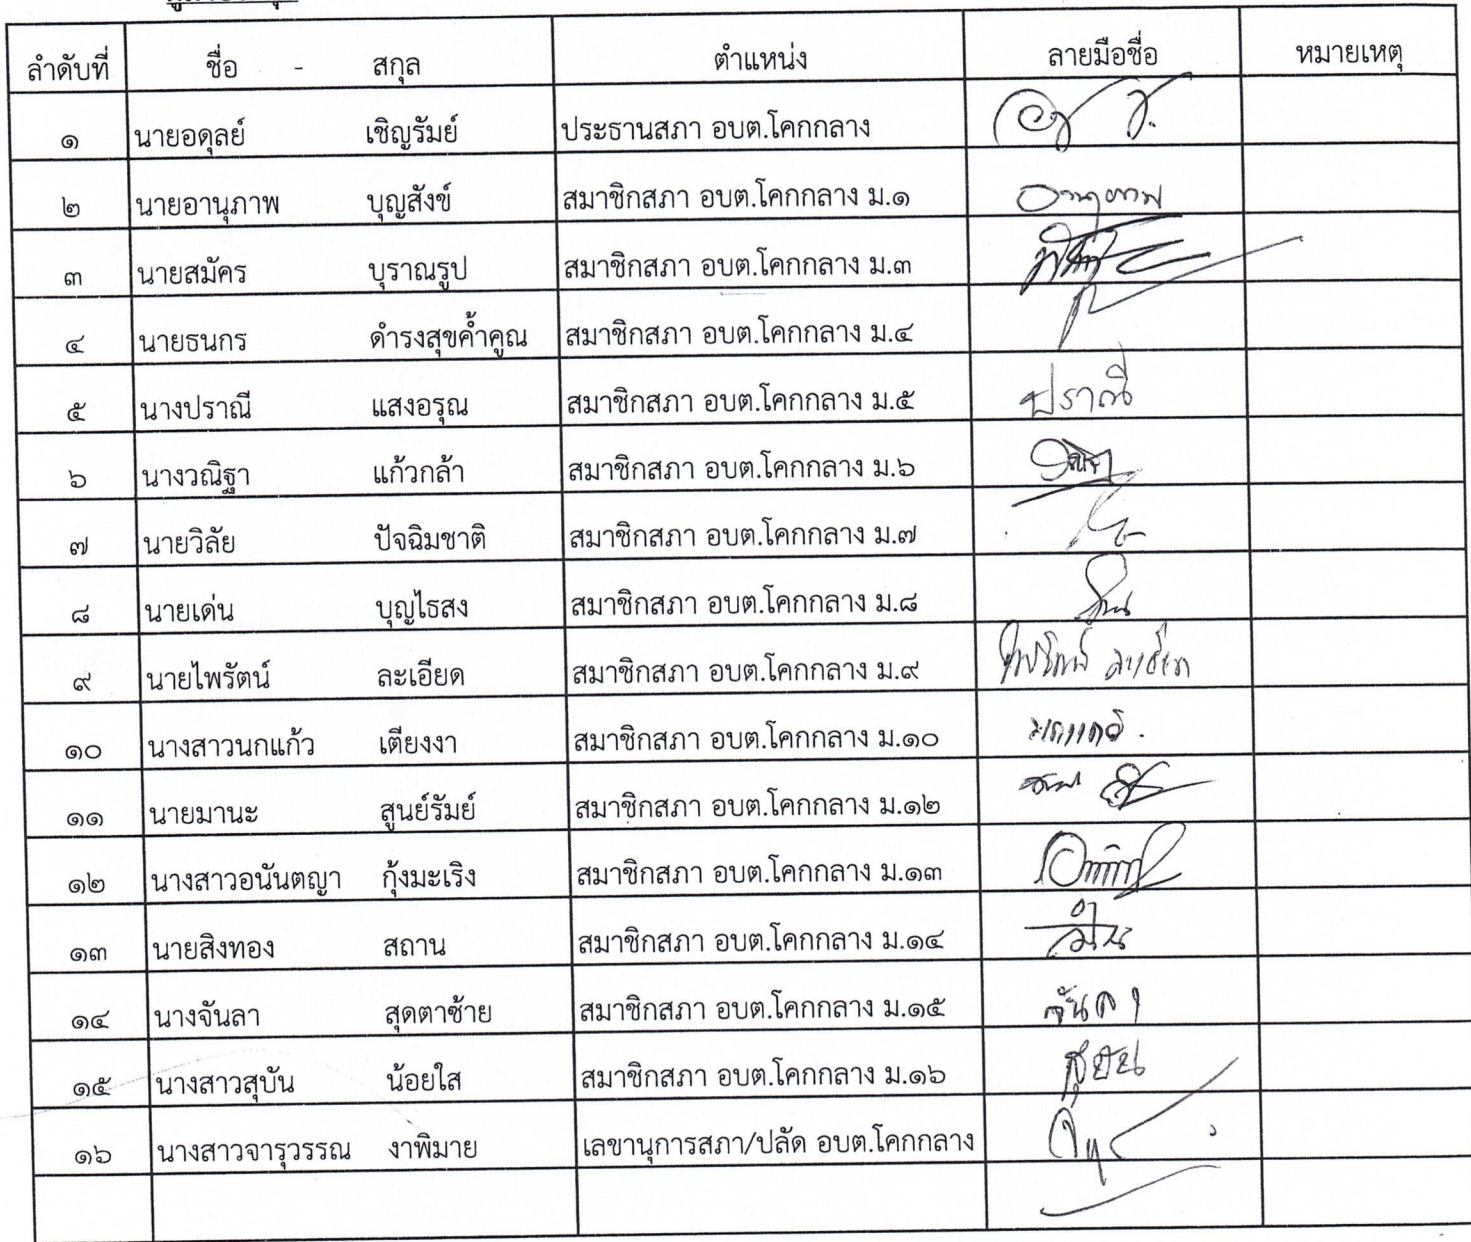 ลำดับที่ ชื่อ - สกุล ตำแหน่ง ลายมือชื่อ หมายเหตุ
๑ นายอดุลย์ เชิญรัมย์ ประธานสภา อบต.โคกกลาง
๒ นายอานุภาพ บุญสังข์ สมาชิกสภา อบต.โคกกลาง ม.๑ อานุภาพ
๓ นายสมัคร บุราณรูป สมาชิกสภา อบต.โคกกลาง ม.๓
๔ นายธนกร ดำรงสุขค้ำคูณ สมาชิกสภา อบต.โคกกลาง ม.๔
๕ นางปราณี แสงอรุณ สมาชิกสภา อบต.โคกกลาง ม.๕ ปราณี
๖ นางวณิฐา แก้วกล้า สมาชิกสภา อบต.โคกกลาง ม.๖
๗ นายวิลัย ปัจฉิมชาติ สมาชิกสภา อบต.โคกกลาง ม.๗
๘ นายเด่น บุญไธสง สมาชิกสภา อบต.โคกกลาง ม.๘
๙ นายไพรัตน์ ละเอียด สมาชิกสภา อบต.โคกกลาง ม.๙ ไพรัตน์ ละเอียด
๑๐ นางสาวนกแก้ว เตียงงา สมาชิกสภา อบต.โคกกลาง ม.๑๐ นกแก้ว
๑๑ นายมานะ สูนย์รัมย์ สมาชิกสภา อบต.โคกกลาง ม.๑๒
๑๒ นางสาวอนันตญา กุ้งมะเริง สมาชิกสภา อบต.โคกกลาง ม.๑๓
๑๓ นายสิงทอง สถาน สมาชิกสภา อบต.โคกกลาง ม.๑๔
๑๔ นางจันลา สุดตาซ้าย สมาชิกสภา อบต.โคกกลาง ม.๑๕ จันลา
๑๕ นางสาวสุบัน น้อยใส สมาชิกสภา อบต.โคกกลาง ม.๑๖ สุบัน
๑๖ นางสาวจารุวรรณ งาพิมาย เลขานุการสภา/ปลัด อบต.โคกกลาง